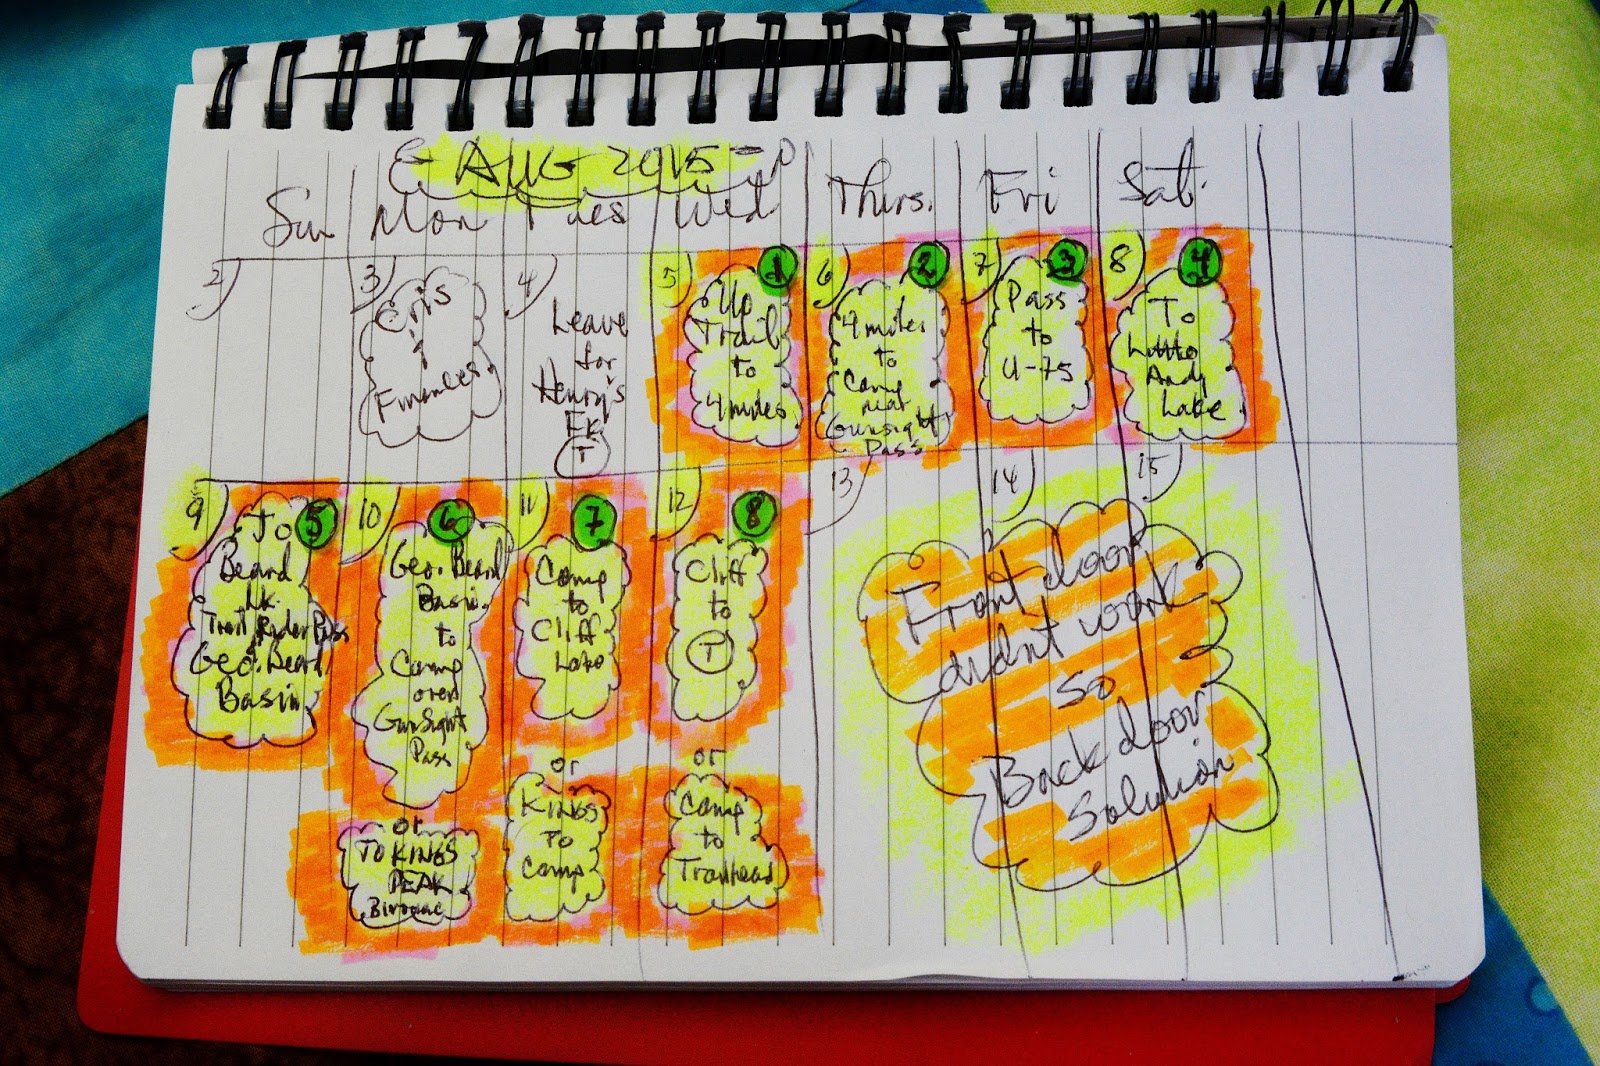 AUG 2015
Sun Mon Tues Wed Thurs. Fri Sat.
2
3
Cris
&
Finances
4
Leave
for
Henry's
Fk.
T
5
1
Up
Trail
to
4 miles
6
2
4 miles
to
Camp
near
Gunsight
Pass
7
3
Pass
to
U-75
8
4
To
Little
Andy
Lake
9
5
To
Beard
Lk.
Trail Rider Pass
Geo. Beard
Basin
10
6
Geo. Beard
Basin.
to
Camp
over
GunSight
Pass
or
TO KINGS
PEAK
11
7
Camp
to
Cliff
Lake
or
KINGS
to
Camp
12
8
Cliff
to
T
or
Camp
to
Trailhead
13
14
15
Front door
didnt work
so
Back door
Solution